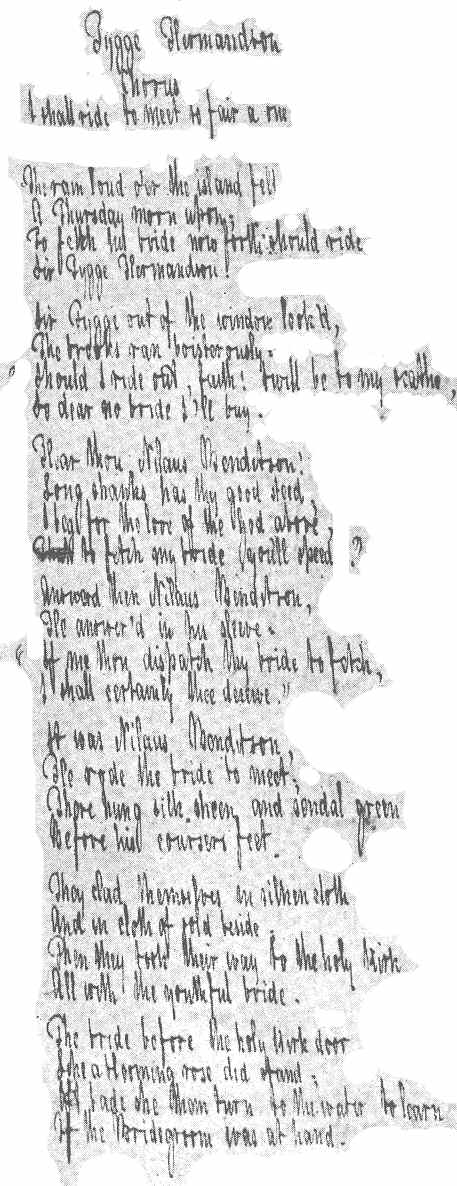 Tygge Hermandson
Chorus
I shall ride to meet so fair a one

The rain loud o'er the island fell
A Thursday morn upon;
To fetch his bride now forth should ride
Sir Tygge Hermandson!

Sir Tygge out of the window look'd,
The brooks ran boisterously.
"Should I ride out, faith! 'twill be to my scathe,
So dear no bride I'll buy.

Hear thou Nilaus Benditson!
Long shanks has thy good steed,
I beg for the love of the God above,
to fetch my bride you'll speed?

Answered then Nilaus Benditson,
He answer'd in his sleeve.
"If me thou dispatch thy bride to fetch,
I shall certainly thee deceive."

It was Nilaus Benditson,
He rode the bride to meet;
There hung silk sheen and sendal green
Before his coursers feet.

They clad themselves in silken cloth
And in cloth of gold beside;
Then they took their way to the holy kirk
All with the youthful bride.

The bride before the holy kirk door
Like a blooming rose did stand;
bade she them turn to the water to learn
If the Bridegroom was at hand.